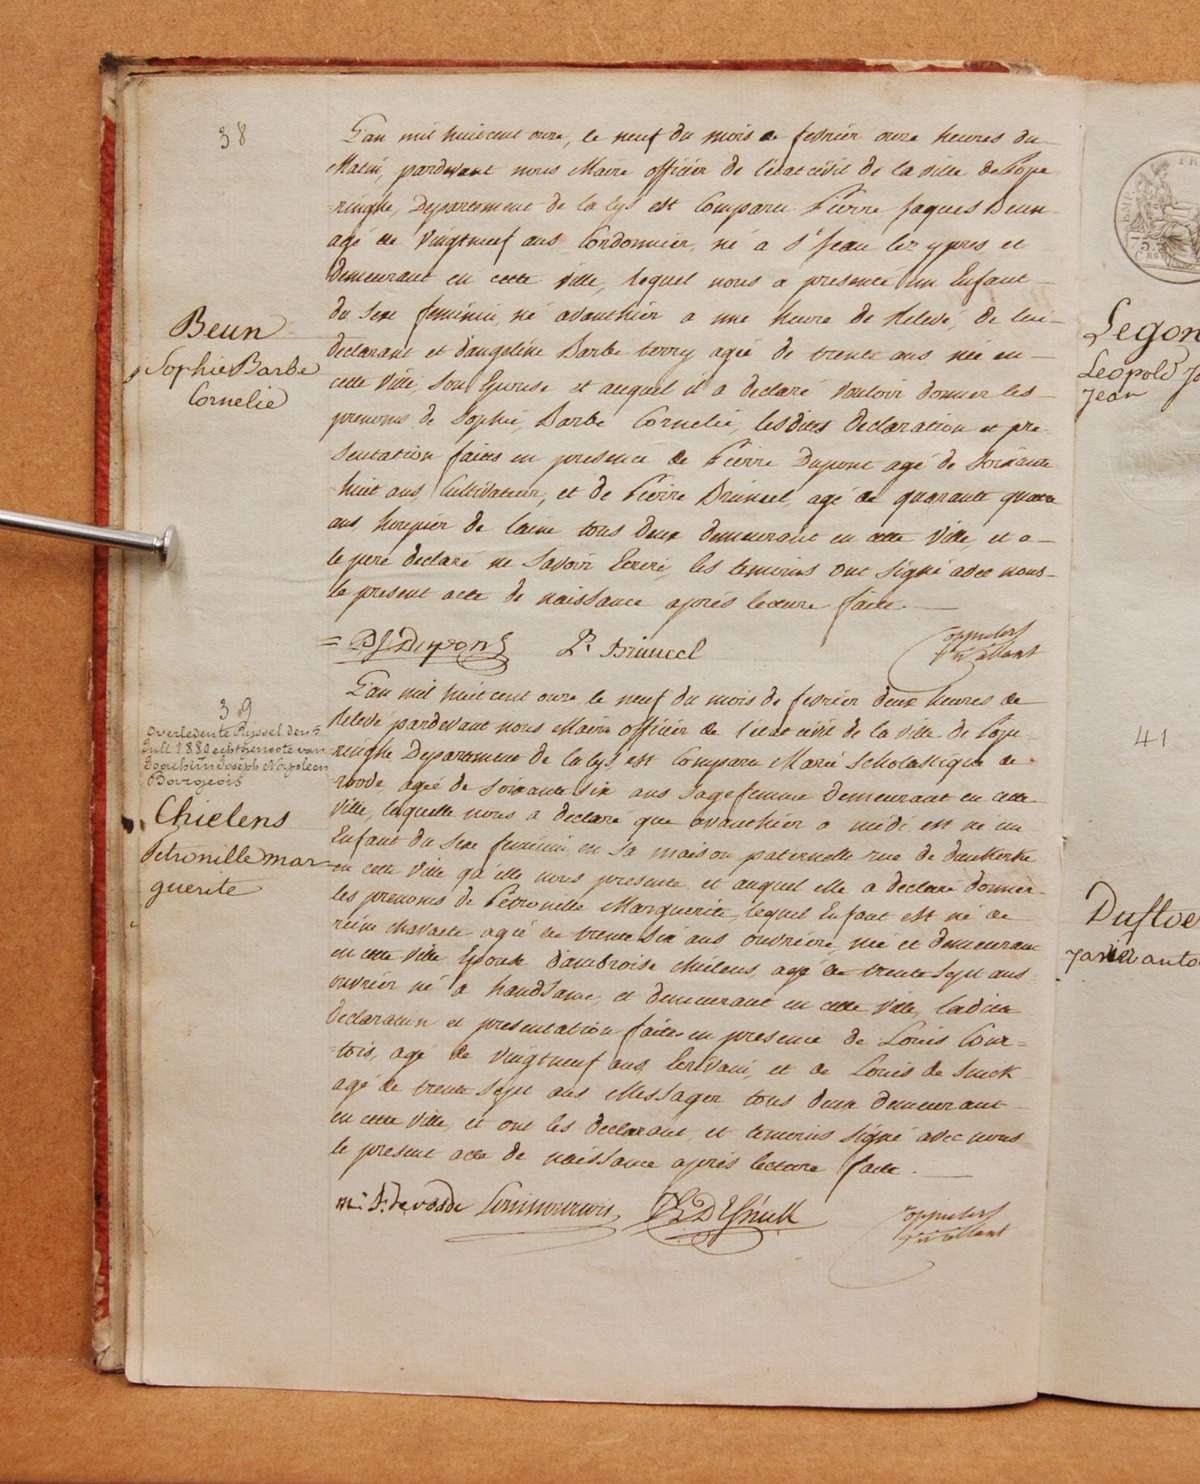 38
L'an mil huit cent onze, le neuf du mois de fevrier onze heures du
Matin, pardevant nous Maire officier de l'etat civil de la ville de Pope
ringhe, Departement de la lys est Comparu Pierre Jaques Beun
agé de vingtneuf ans Cordonnier, né a St Jean lez ypres et
demeurant en cette ville, lequel nous a presenté un Enfant
du Sexe feminin, né avanthier a une heure de Relevé, de lui
declarant et d'angeline Barbe terry agée de trente ans née en
cette ville, son Epouse et auquel il a declaré vouloir donner les
prenoms de Sophie, Barbe Cornelie, lesdites declaration et pre-
sentation faites en presence de Pierre Dupont agé de soixante
huit ans Cultivateur, et de Pierre Bruneel, agé de quarante quatre
ans, houpier de laine tous deux demeurant en cette ville, et a
le pere declaré ne Savoir Ecrire, les temoins ont signé avec nous
le present acte de naissance après lecture faite.
Beun
Sophie Barbe
Cornelie
= PJ Dupont Pr Bruneel
39
L'an mil huit cent onze le neuf du mois de fevrier deux heures de
Relevé pardevant nous Maire officier de l'etat civil de la ville de Pope
ringhe Departement de la lys est Comparu Marie Scholastique de
voode, agée de soixante six ans sagefemme demeurant en cette
ville, laquelle nous a declaré que avanthier a midi est né un
Enfant du Sexe feminin, en sa maison paternelle rue de dunkerke
en cette ville qu'elle nous presente, et auquel elle a declaré donner
les prenoms de Petronelle Marguerite, lequel Enfant est né de
reine chavaete agée de trente six ans ouvriere, née et demeurant
en cette ville Epouse d'ambroise chielens agé de trente sept ans
ouvrier né a handsame, et demeurant en cette ville, ladite
declaration et presentation faites en presence de Louis Cour=
=tois, agé de vingtneuf ans, Ecrivain, et de Louis de Snick
agé de trente sept ans Messager tous deux demeurant
en cette ville, et ont les declarant et temoins signé avec nous
le present acte de naissance après lecture faite.
overleden te Rijssel den 5
Juli 1880 echtgenoote van
Joseph Napoleon
Bourgeois
Chielens
Petronille mar
guerite
m: S: de voode
Legon
Leopold Jo
Jean
41